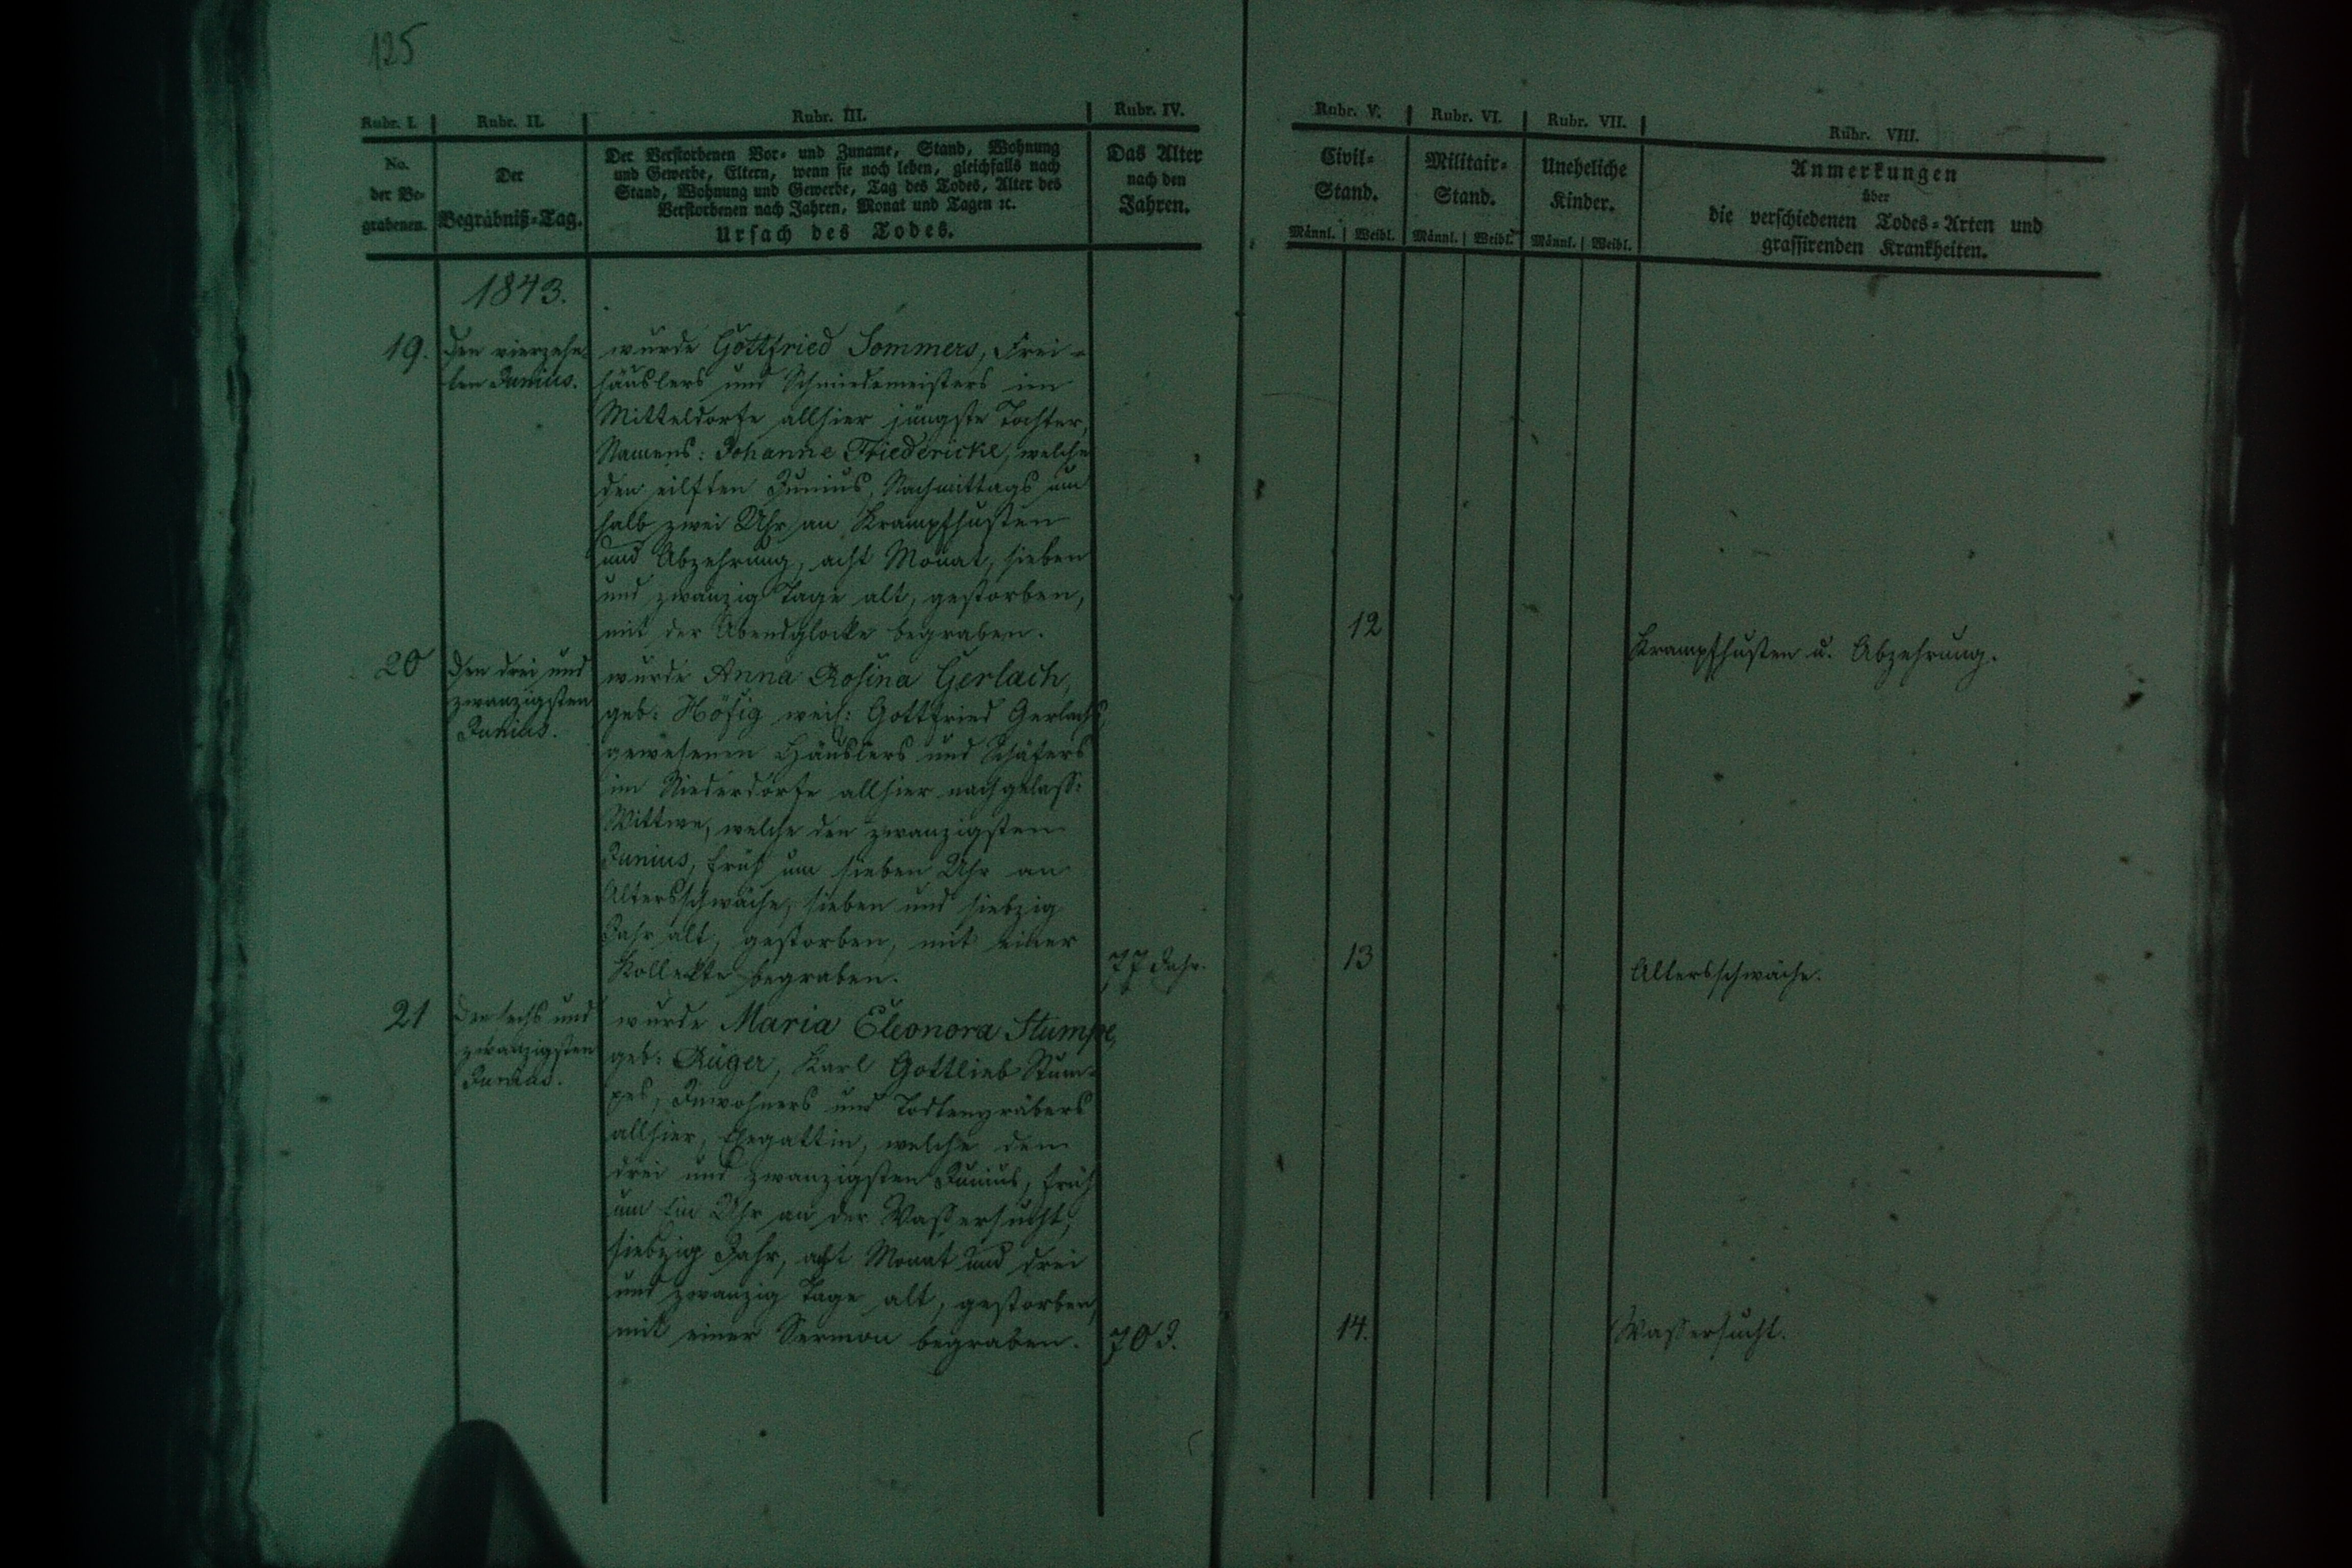 125
Rubr. I. Rubr. II. Rubr. III. Rubr. IV. Rubr. V. Rubr. VI. Rubr. VII. Rubr. VIII.
No.
der Be-
grabenen.
Der
Begräbniß-Tag.
Der Verstorbenen Vor- und Zuname, Stand, Wohnung
und Gewerbe, Eltern, wenn sie noch leben, gleichfalls nach
Stand, Wohnung und Gewerbe, Tag des Todes, Alter des
Verstorbenen nach Jahren, Monat und Tagen ꝛc.
Ursach des Todes.
Das Alter
nach den
Jahren.
Civil-
Stand.
Männl. Weibl.
Militair-
Stand.
Männl. Weibl.
Uneheliche
Kinder.
Männl. Weibl.
Anmerkungen
über
die verschiedenen Todes-Arten und
grassirenden Krankheiten.
1843.
19.
Den vierzehn-
ten Junius.
wurde Gottfried Sommers, Frei-
häuslers und Schmiedemeisters im
Mitteldorfe allhier jüngste Tochter,
Namens: Johanne Friedericke, welche
den eilften Junius, Nachmittags um
halb zwei Uhr an Krampfhusten
und Abzehrung, acht Monat, sieben
und zwanzig Tage alt, gestorben,
mit der Abendglocke begraben.
12
Krampfhusten u. Abzehrung.
20
Den drei und
zwanzigsten
Junius.
wurde Anna Rosina Gerlach,
geb: Höfig weil: Gottfried Gerlachs,
gewesenen Häuslers und Schäfers
im Niederdorfe allhier nachgelass:
Wittwe, welche den zwanzigsten
Junius, früh um sieben Uhr an
Altersschwäche, sieben und siebzig
Jahr alt, gestorben, mit einer
Kollekte begraben.
77 Jahr.
13
Altersschwäche.
21
Den sechs und
zwanzigsten
Junius.
wurde Maria Eleonora Stumpe,
geb: Rüger, Karl Gottlieb Stum-
pes, Inwohners und Todtengräbers
allhier, Ehegattin, welche den
drei und zwanzigsten Junius, früh
um Ein Uhr an der Wassersucht,
siebzig Jahr, acht Monat und drei
und zwanzig Tage alt, gestorben,
mit einer Sermon begraben.
70 J.
14.
Wassersucht.